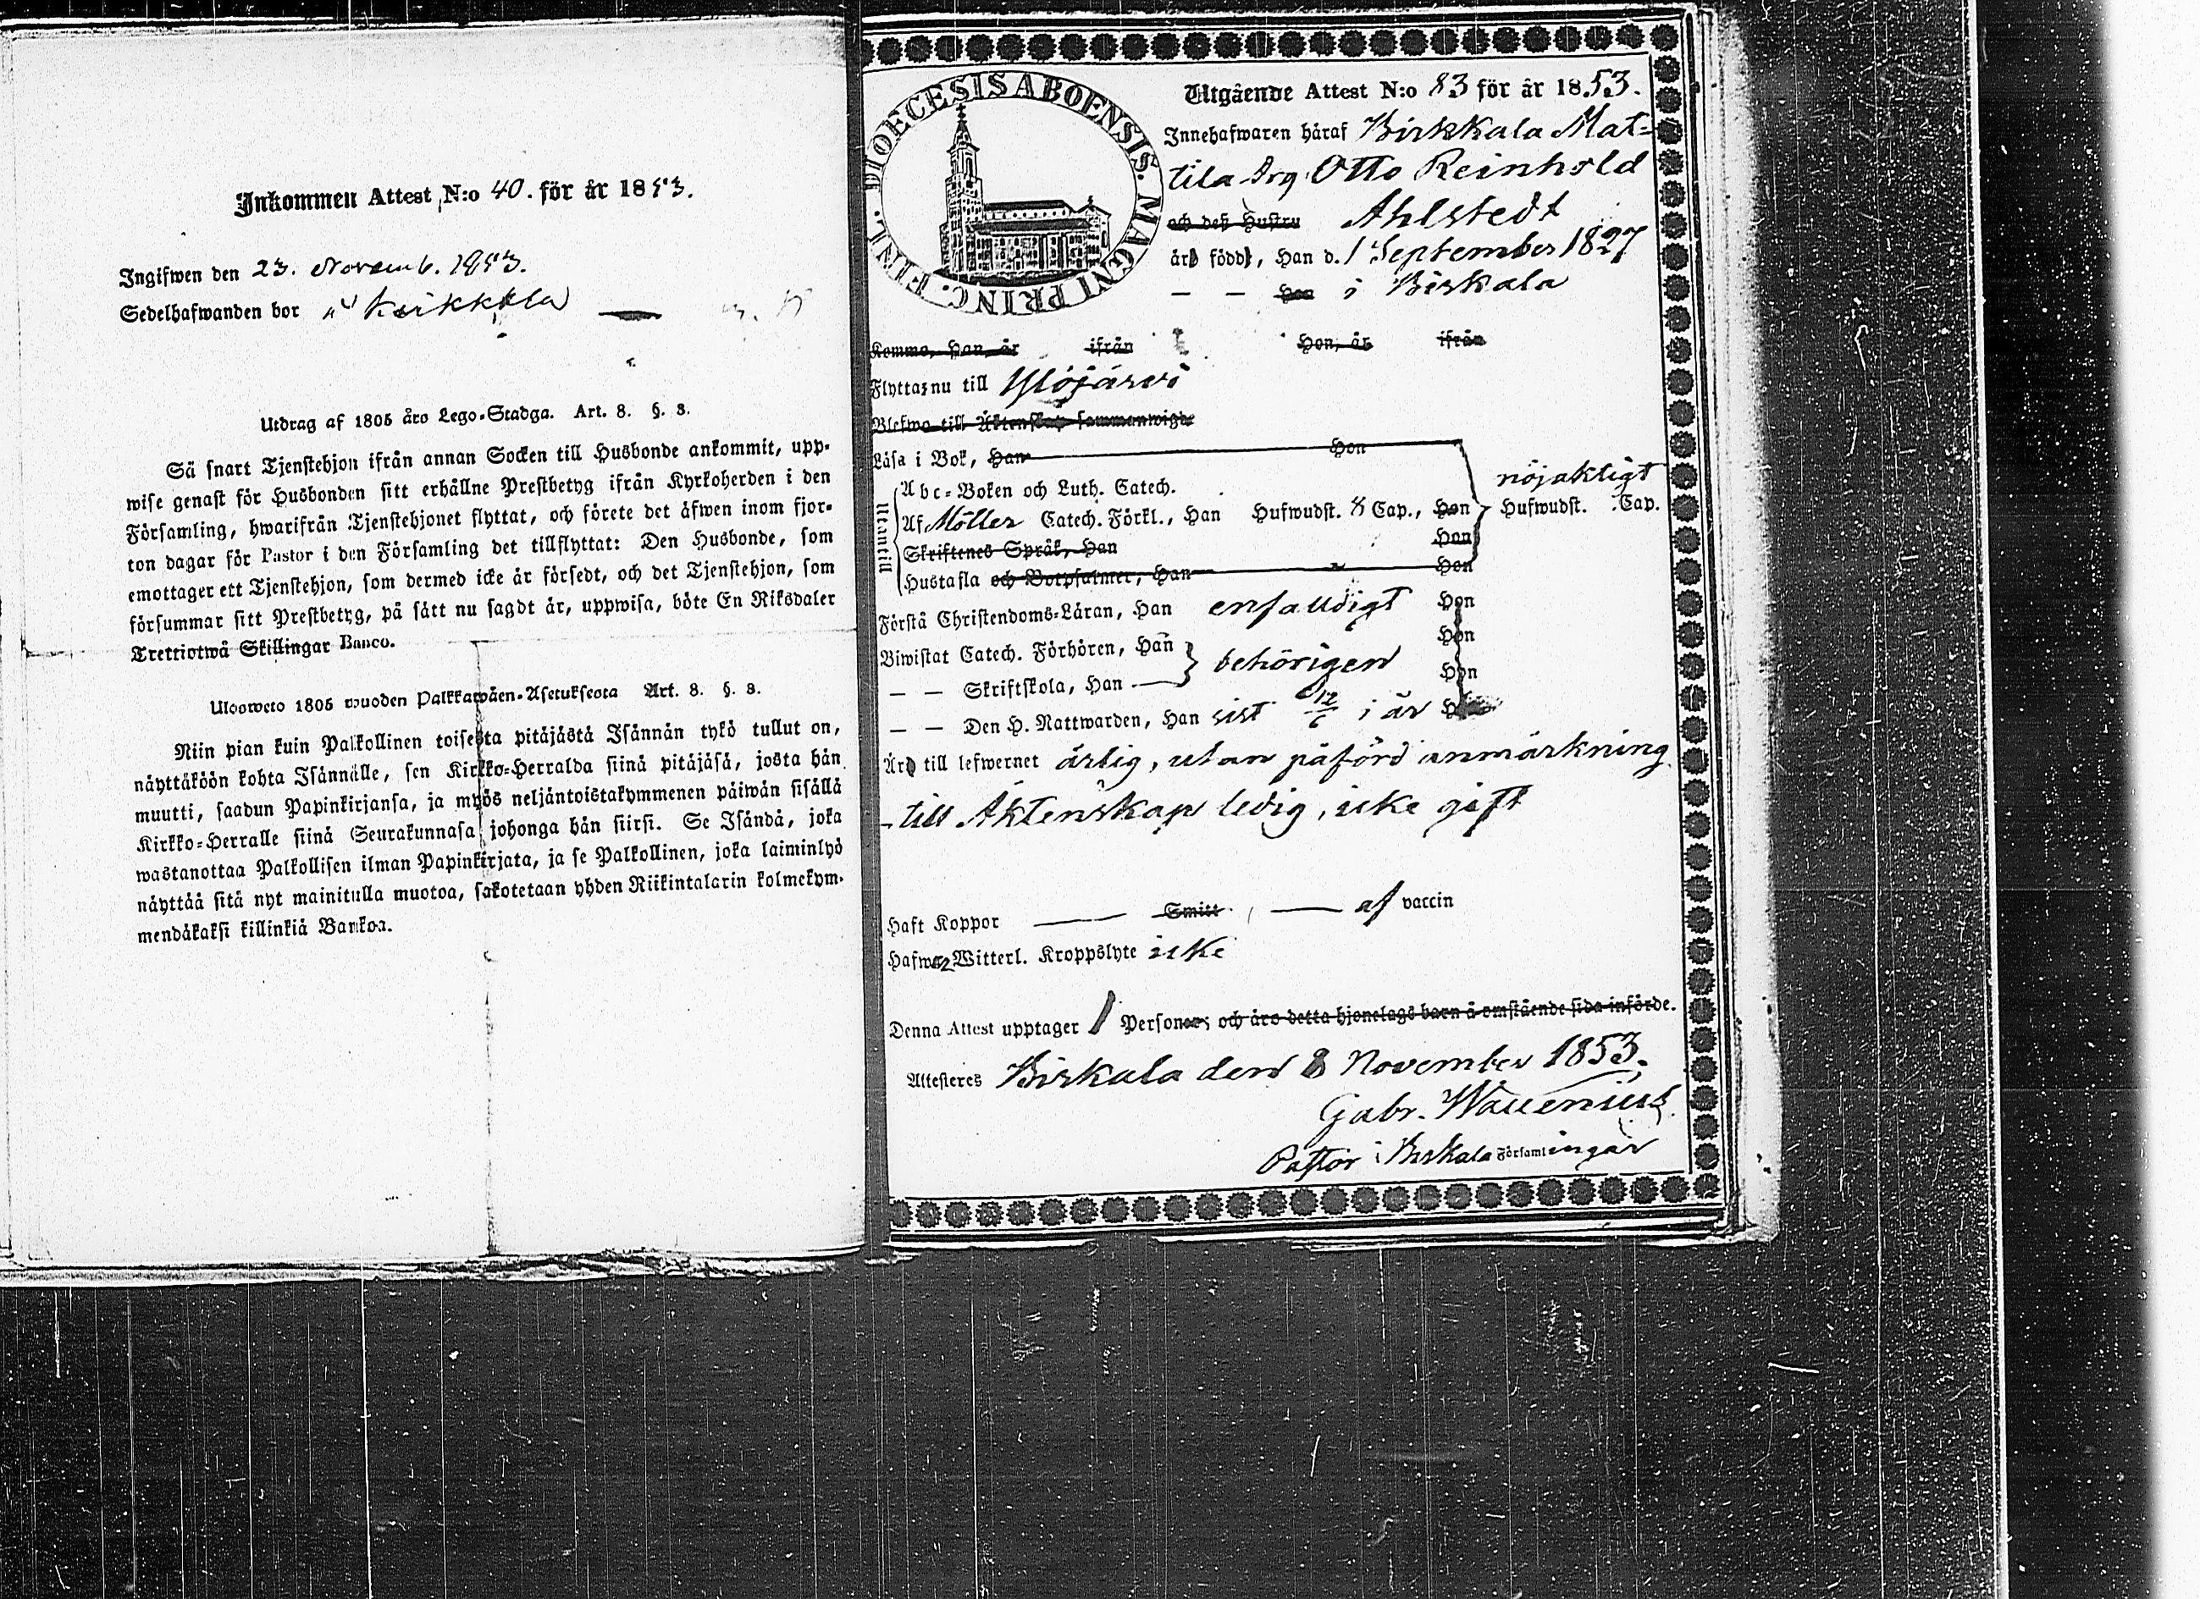 Inkommen Attest N:o 40. för år 1853.
Ingifwen den 23. Novemb. 1853.
Sedelhafwanden bor
Utdrag af 1805 års Lego-Stadga. Art. 8. §. 3.
Så snart Tjenstehjon ifrån annan Socken till Husbonde ankommit, upp-
wise genast för Husbonden sitt erhållne Prestbetyg ifrån Kyrkoherden i den
Församling, hwarifrån Tjenstehjonet flyttat, och förete det äfwen inom fjor-
ton dagar för Pastor i den Församling det tillflyttat: Den Husbonde, som
emottager ett Tjenstehjon, som dermed icke är försedt, och det Tjenstehjon, som
försummar sitt Prestbetyg, på sätt nu sagdt är, uppwisa, böte En Riksdaler
Trettiotwå Skillingar Banco.
Ulosweto 1805 wuoden Palkkawäen-Asetuksesta Art. 8. §. 3.
Niin pian kuin Palkollinen toisesta pitäjästä Isännän tykö tullut on,
näyttäköön kohta Isännälle, sen Kirkko-Herralda siinä pitäjäsä, josta hän
muutti, saadun Papinkirjansa, ja myös neljäntoistakymmenen päiwän sisällä
Kirkko-Herralle siinä Seurakunnasa johonga hän siirsi. Se Isändä, joka
wastanottaa Palkollisen ilman Papinkirjata, ja se Palkollinen, joka laiminlyö
näyttää sitä nyt mainitulla muotoa, sakotetaan yhden Riikintalarin kolmekym-
mendäkaksi killinkiä Bankoa.
DIOECESIS ABOENSIS. MAGNI PRINC. FINL.
Utgående Attest N:o 83 för år 1853.
Innehafwaren häraf Birkkala Mat-
tila drg. Otto Reinhold
och dess Hustru Ahlstedt
är född, Han d. 1 September 1827
— — Hon i Birkala
Komme, Han, är ifrån Hon, är ifrån
Flyttar nu till Ylöjärvi
Blefwo till Äktenskap sammanwigde
Läsa i Bok, Han Hon
Utantill
Abc-Boken och Luth. Catech. nöjaktigt
Af Möller Catech. Förkl., Han Hufwudst. Cap., Hon Hufwudst. Cap.
Skriftenes Språk, Han Hon
Hustafla och Botpsalmer, Han Hon
Förstå Christendoms-Läran, Han enfaldigt Hon
Biwistat Catech. Förhören, Han behörigen Hon
— — Skriftskola, Han Hon
— — Den H. Nattwarden, Han sist 12/6 i år
Är till lefwernet ärlig, utan påförd anmärkning
till Äktenskap ledig, icke gift
Haft Koppor — Smitt — af vaccin
Hafwer Witterl. Kroppslyte icke
Denna Attest upptager 1 Personer; och äro detta hjonelags barn å omstående sida införde.
Attesteres Birkala den 8 November 1853.
Gabr. Wallenius
Pastor i Birkala Församlingar